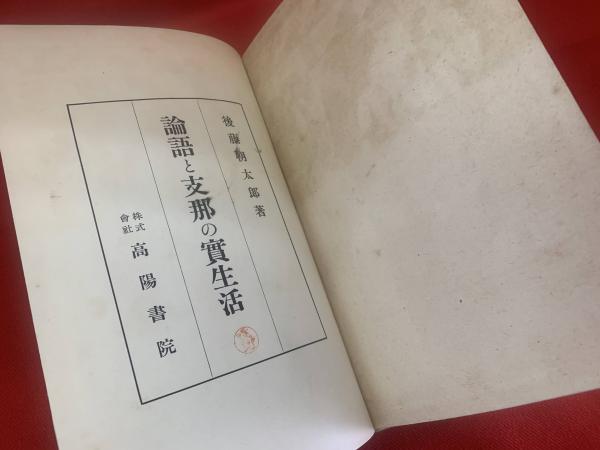 後藤朝太郎著
論語と支那の實生活
株式會社 高陽書院